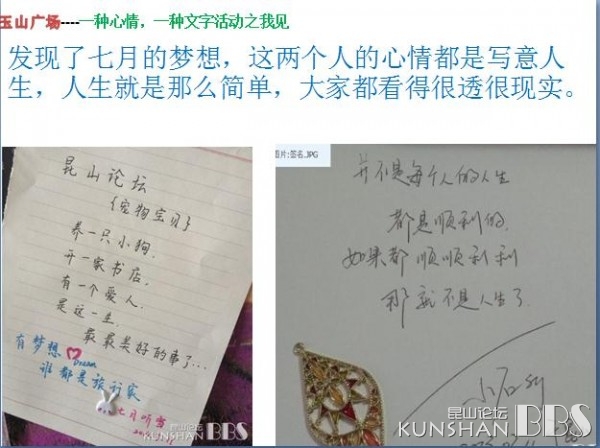 玉山广场----一种心情，一种文字活动之我见
发现了七月的梦想，这两个人的心情都是写意人
生，人生就是那么简单，大家都看得很透很现实。
昆山论坛
《宠物宝贝》
养一只小狗.
开一家书店.
有一个爱人.
是这一生.
最最美好的事了...
有梦想
Dream
谁都是旅行家
...七月听雪
昆山论坛
KUNSHAN BBS
图片:签名.JPG
并不是每个人的人生
都是顺利的.
如果都顺顺利利
那就不是人生了.
昆山论坛
KUNSHAN BBS